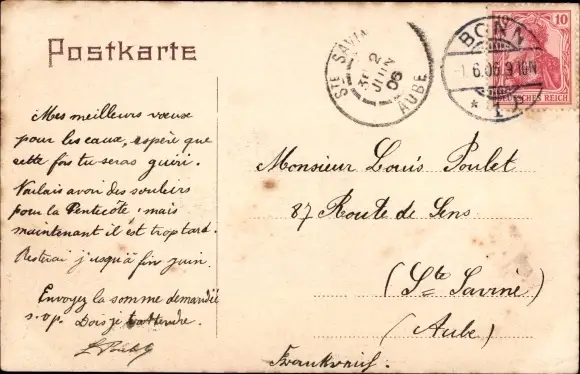 Postkarte
STE SAVINE
3E 2
JUIN
06
AUBE
BONN
1.6.06.9-10N
* 1 I
10
DEUTSCHES REICH
Mes meilleurs vœux
pour les eaux, espère que
cette fois tu seras guéri.
Voulais avoir des souliers
pour la Pentecôte, mais
maintenant il est trop tard.
Resterai jusqu'à fin juin.
Envoyez la somme demandée
s.v.p. Dois je t'attendre.
Monsieur Louis Poulet
87 Route de Sens
(Ste Savine)
(Aube)
Frankreich.